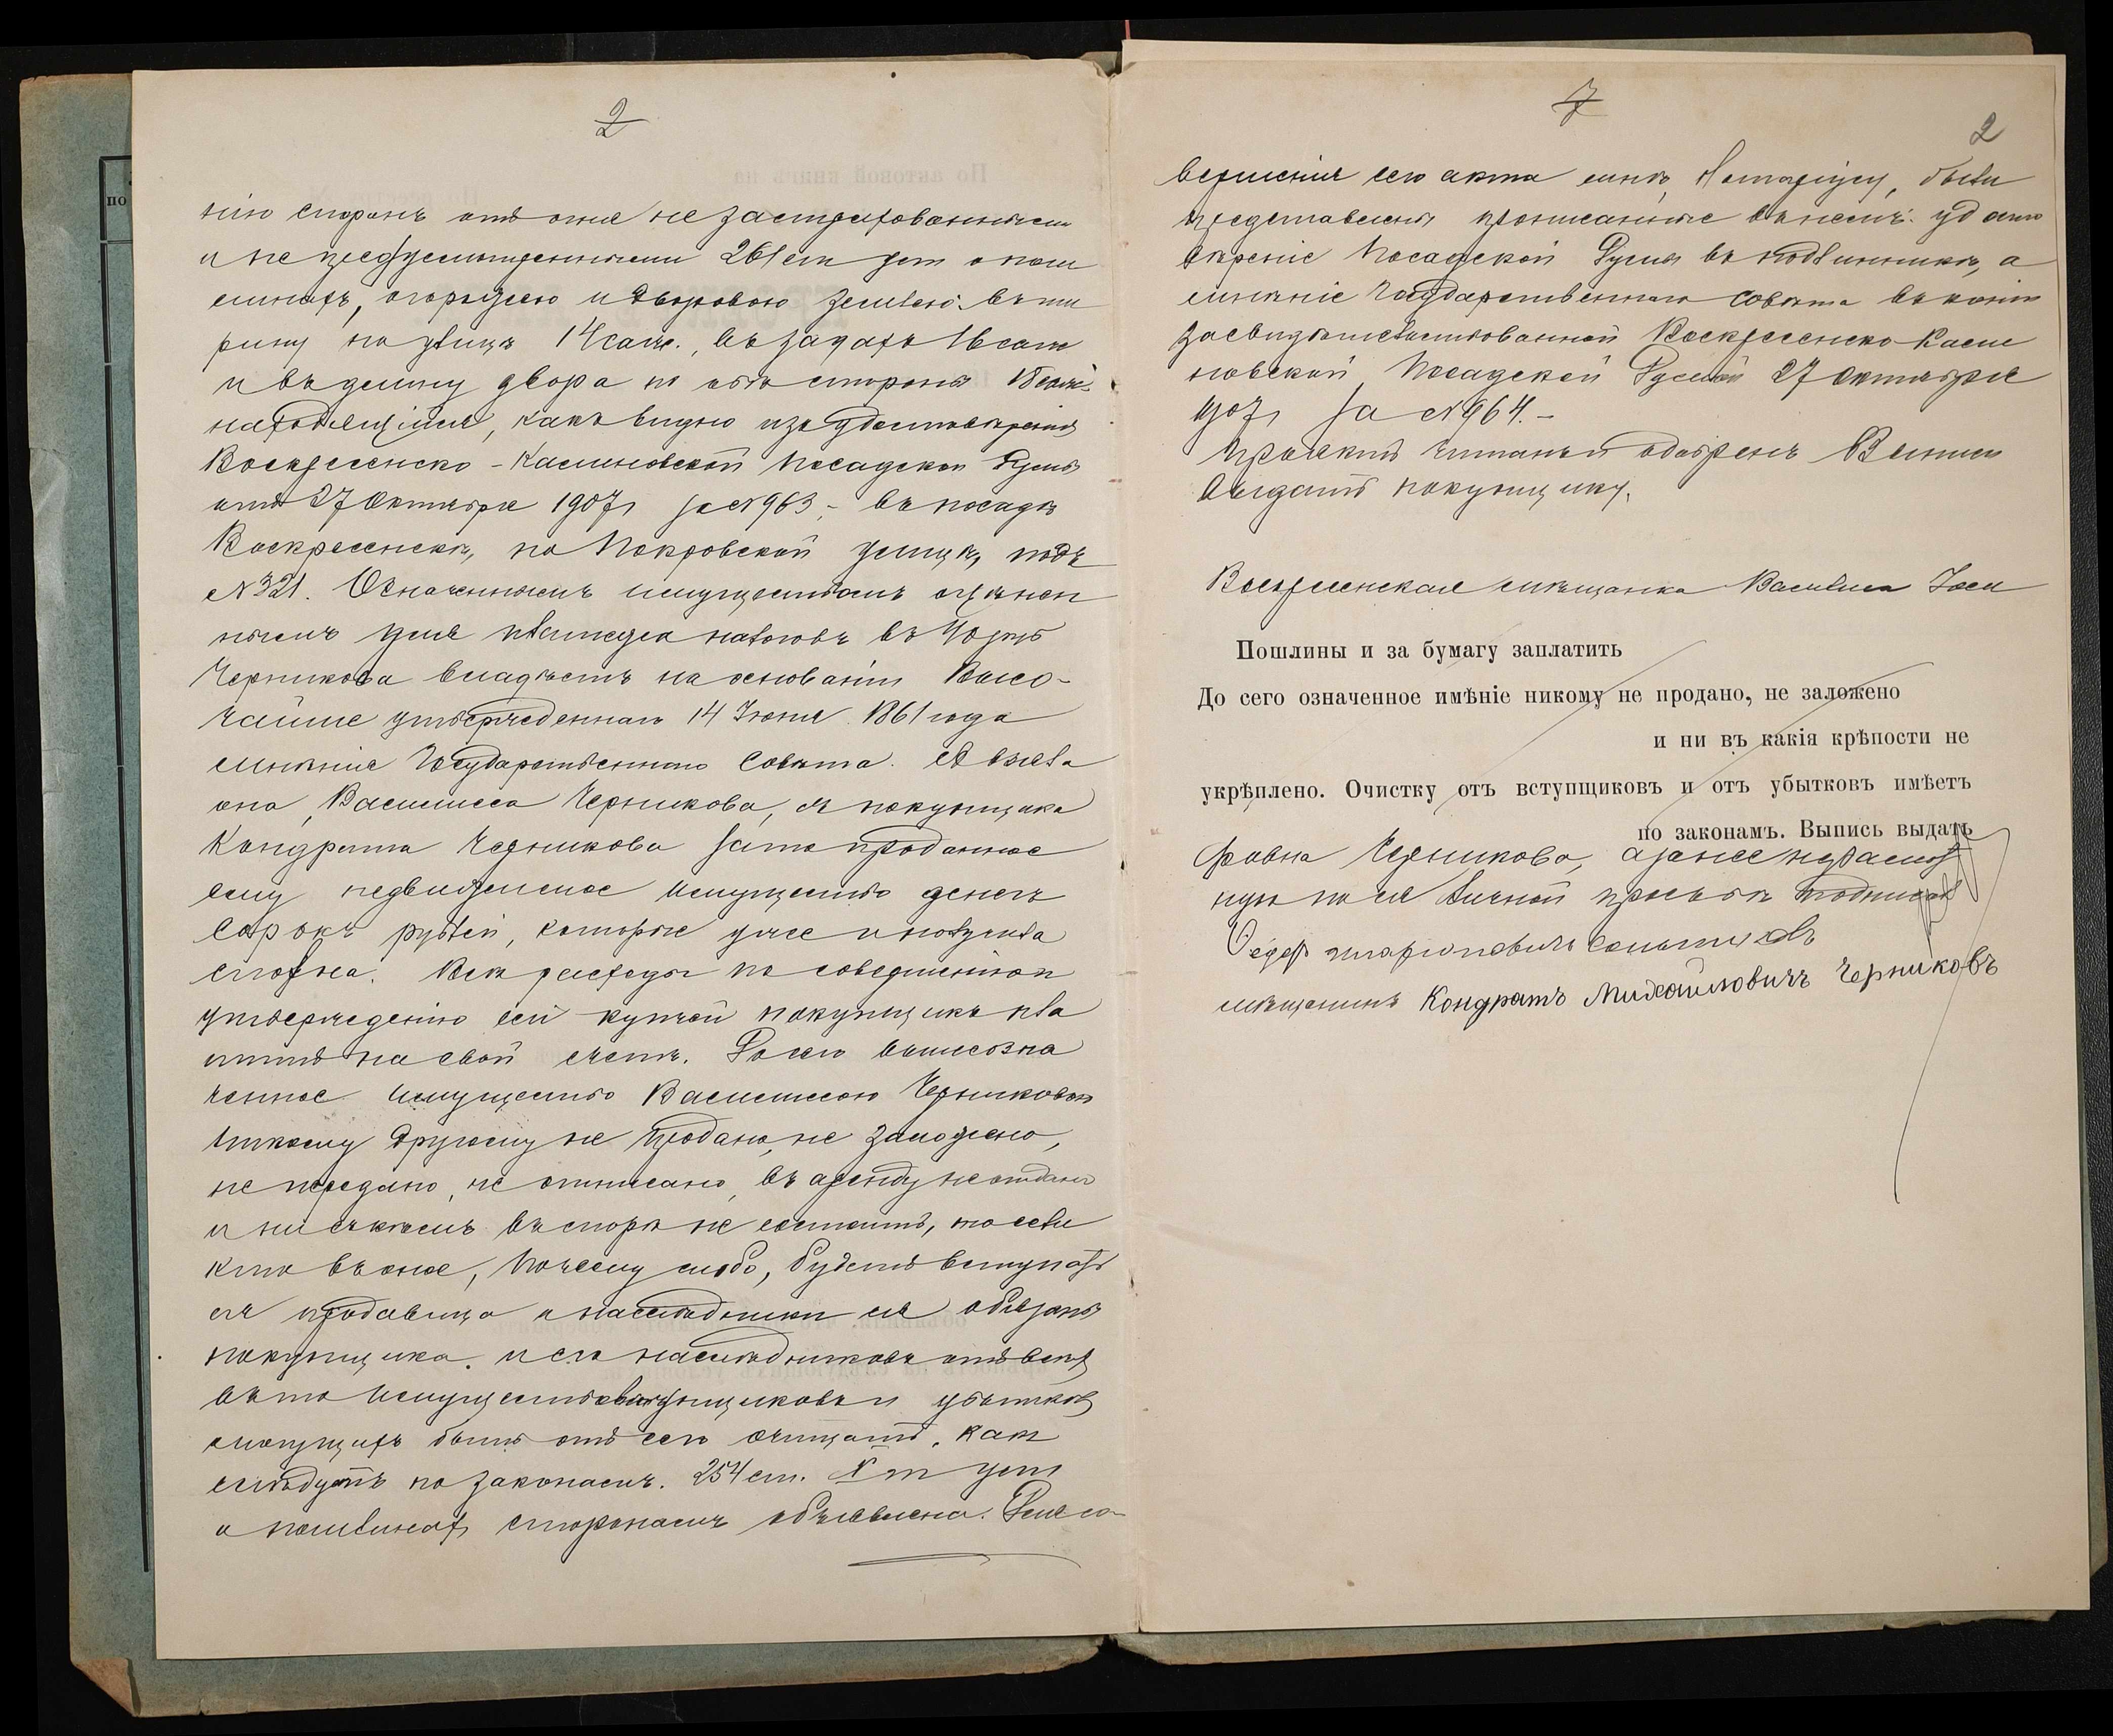 2
нію сторонъ отъ оныя не застрахованными
и не предусмотренными 261 ст уст о пош
линахъ, огородною и дворовою землею: въ ши
рину по улицѣ 14 саж., въ задахъ 16 саж
и въ длину двора по обѣ стороны саж.
находящійся, какъ видно изъ удостовѣренія
Воскресенско-Калиновской Посадской Думы
отъ 27 Октября 1907 г за № 963,- въ посадѣ
Воскресенскѣ, по Покровской улицѣ, подъ
№ 321. Означеннымъ имуществомъ оцѣнен
нымъ для платежа налоговъ въ 40 руб
Черникова владѣетъ на основаніи Высо-
чайше утвержденнаго 14 Іюня 1861 года
мнѣнія Государственнаго Совѣта. А взяла
она, Василисса Черникова, съ покупщика
Кондрата Черникова за то проданное
ему недвижимое имущество денегъ
сорокъ рублей, которые уже и получила
сполна. Всѣ расходы по совершенію и
утвержденію сей купчей покупщикъ пла
титъ на свой счетъ. До сего вышеозна
ченное имущество Василиссою Черниковою
никому другому не продано, не заложено,
не передано, не отписано, въ аренду не отдано
и ни съ кѣмъ въ спорѣ не состоитъ, но если
кто въ оное, почему либо, будетъ вступать
ся продавица и наслѣдники ея обязаны
покупщика и его наслѣдниковъ отъ всѣхъ
въ то имущество вступщиковъ и убытковъ
могущихъ быть отъ сего очищать, какъ
слѣдуетъ по законамъ. 254 ст. V т уст
о пошлинахъ сторонамъ объявлена. Для со-
7
2
вершенія сего акта мнѣ, Нотаріусу, были
представлены прописанные въ немъ: удосто
вѣреніе Посадской Думы въ подлинникѣ, а
мнѣніе Государственнаго Совѣта въ копіи
засвидѣтельствованной Воскресенско-Кали
новской Посадской Думой 27 Октября
1907 г за № 964.-
Проектъ читанъ и одобренъ Выпись
выдать покупщику.
Воскресенская мѣщанка Василиса Іоси
Пошлины и за бумагу заплатить
До сего означенное имѣніе никому не продано, не заложено
и ни въ какія крѣпости не
укрѣплено. Очистку отъ вступщиковъ и отъ убытковъ имѣетъ
по законамъ. Выпись выдать
фовна Черникова, а за нее неграмот
ную по ея личной просьбѣ подписал
Федоръ Иларіоновичъ
мѣщанинъ Кондратъ Михайловичъ Черниковъ